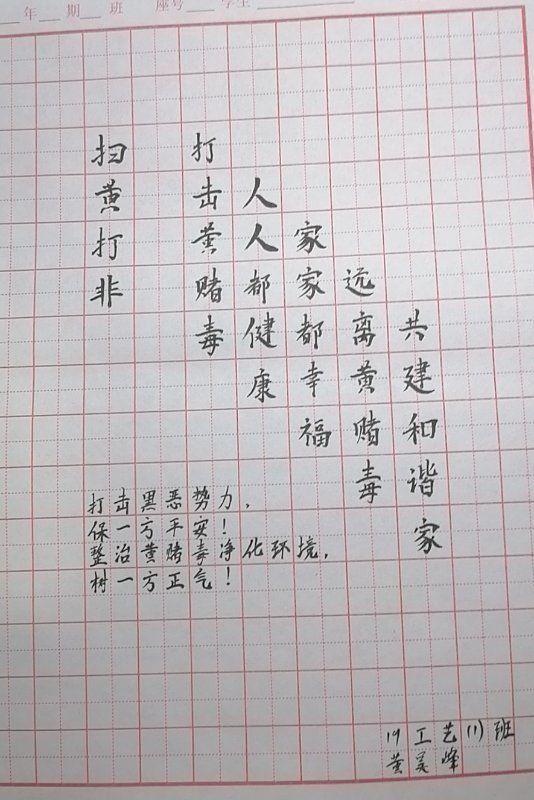 年 期 班 座号 学生
扫黄打非
打击黄赌毒
人人都健康
家家都幸福
远离黄赌毒
共建和谐家
打击黑恶势力,
保一方平安!
整治黄赌毒净化环境,
树一方正气!
19工艺(1)班
黄美峰